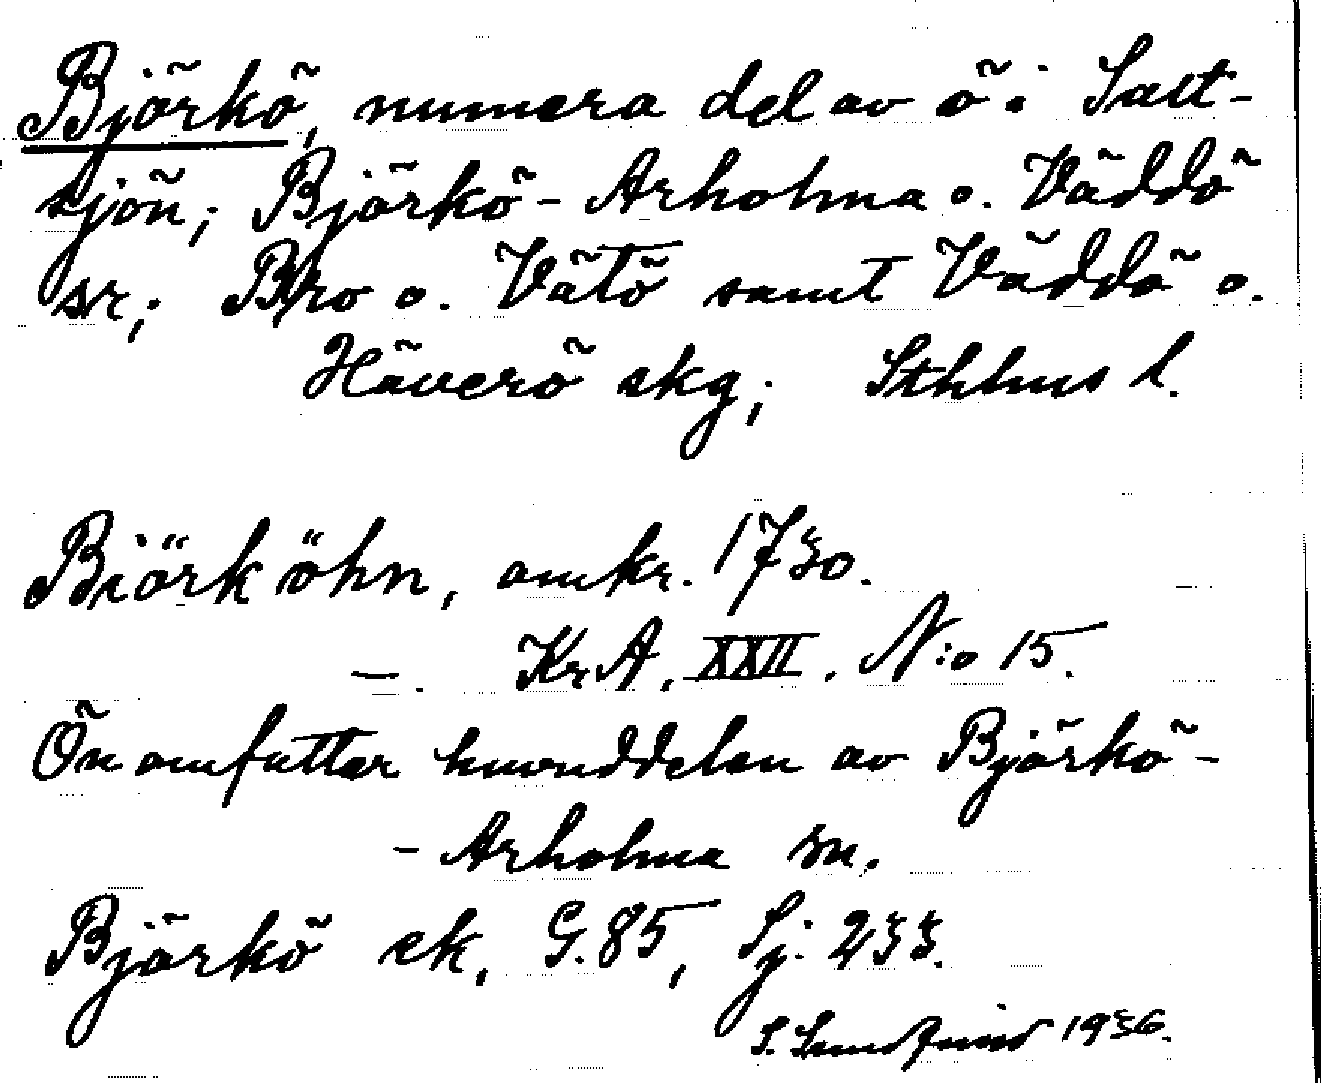 Björkö, numera del av ö i Salt-
sjön; Björkö-Arholma o. Väddö
sr; Bro o. Vätö samt Väddö o.
Häverö skg; Sthlms l.
Biörk öhn, omkr. 1730.
—. KrA. XXII. N:o 15.
Ön omfattar huvuddelen av Björkö-
-Arholma sn.
Björkö ek, G. 85, Sj. 233.
1936.